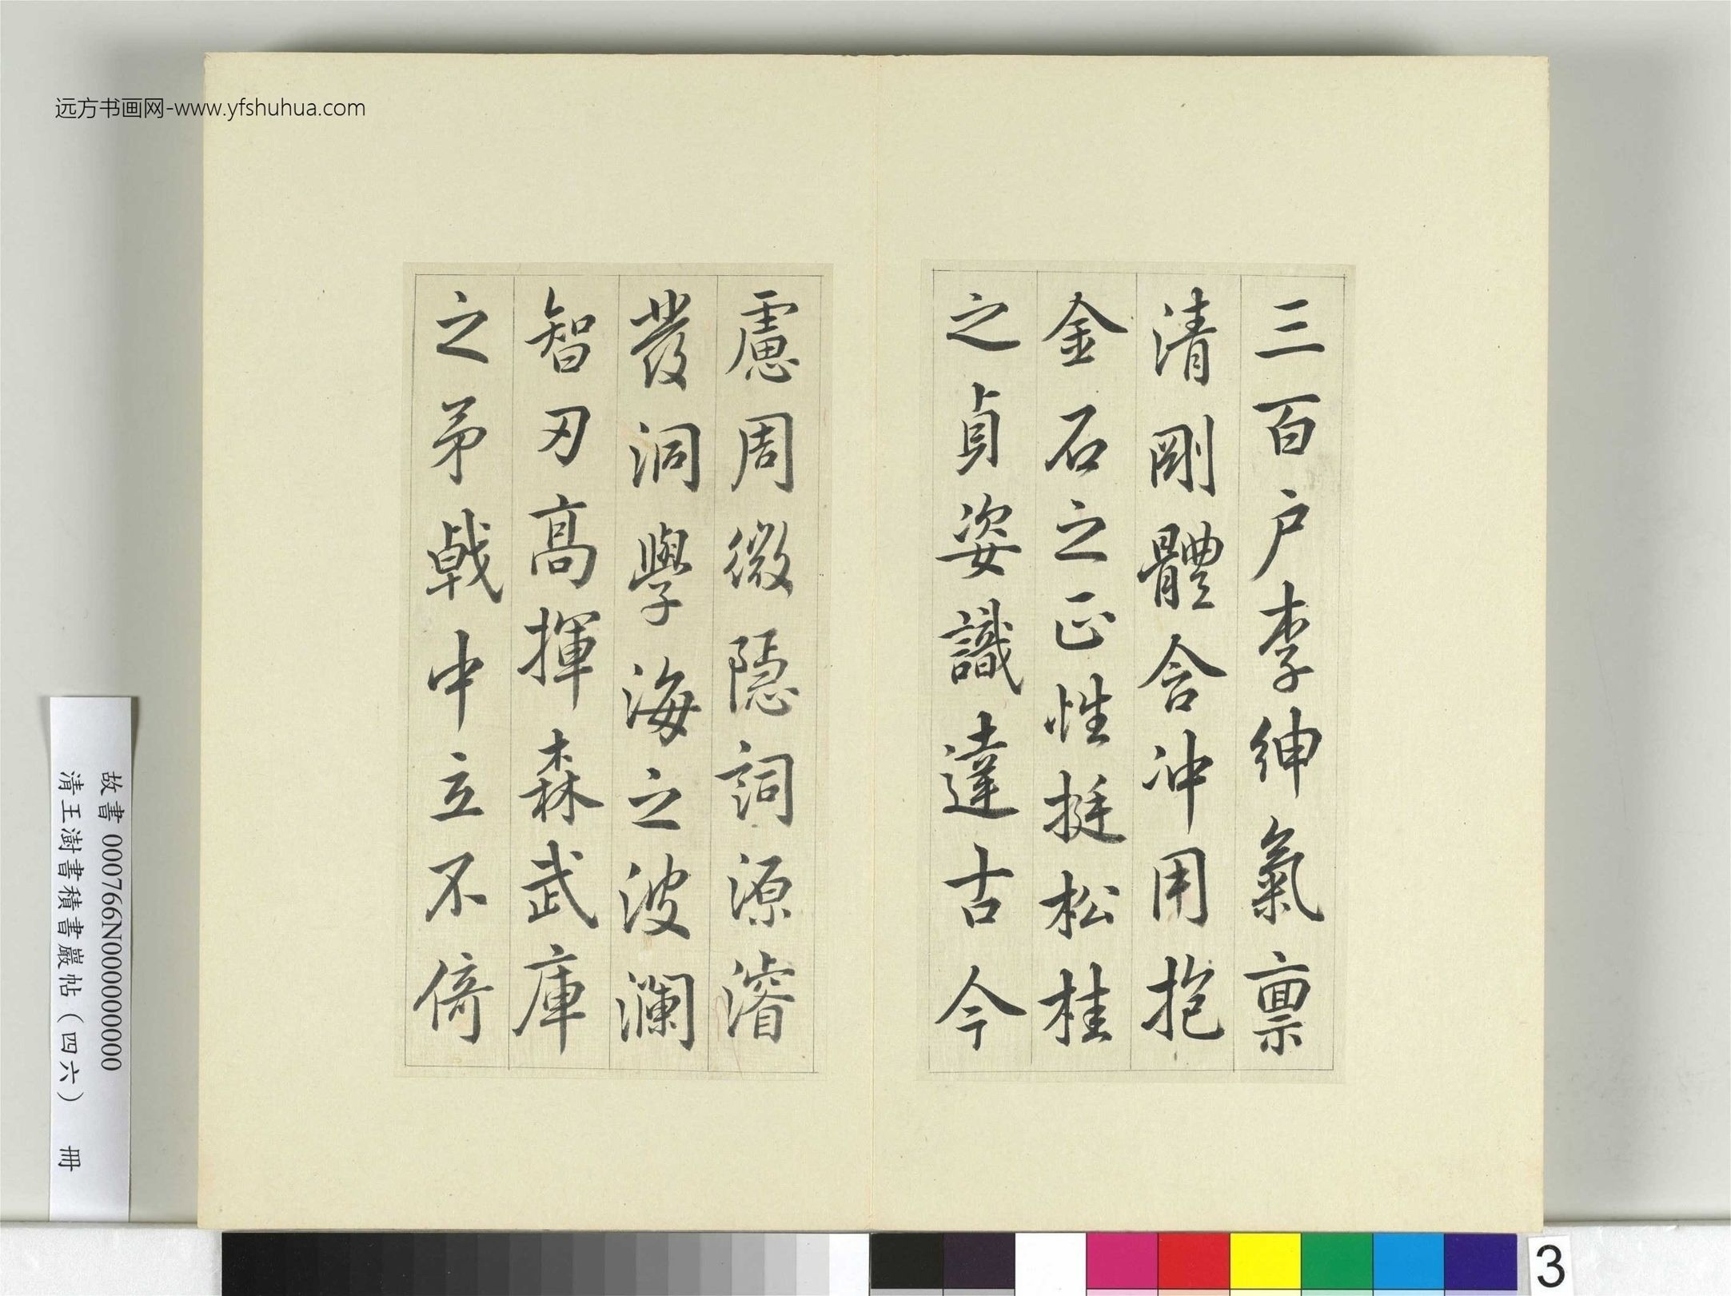 远方书画网-www.yfshuhua.com
三百户李紳氣禀
清剛體含冲用抱
金石之正性挺松桂
之貞姿識達古今
慮周微隱詞源濬
發洞學海之波瀾
智刃高揮森武庫
之矛戟中立不倚
故書 000766N000000000
清王澍書積書巖帖（四六） 冊
3